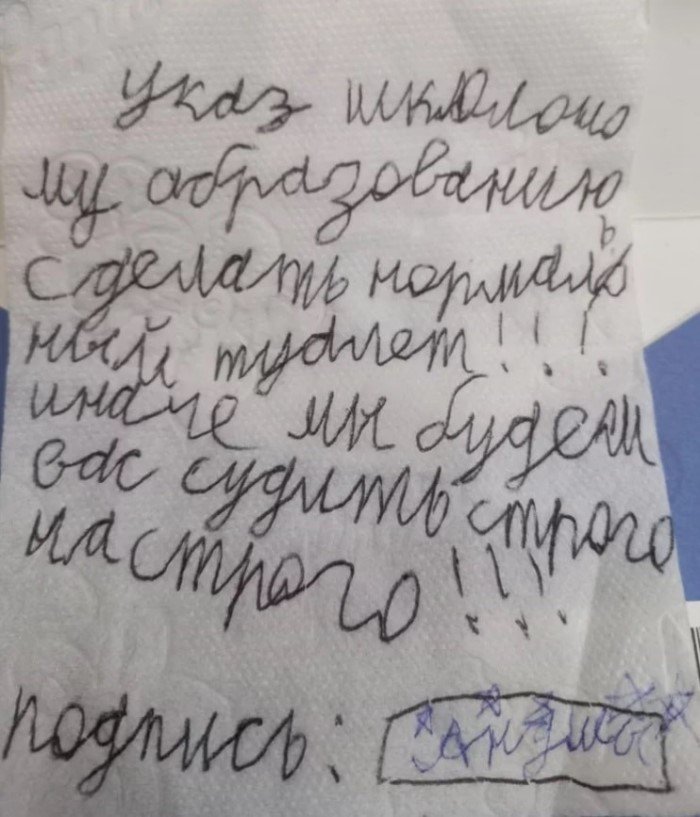 указ шкллоло
му абразованию
сделать нормаль
ный туалет!!!
иначе мы будем
вас судить строго
на строго!!!
подпись: